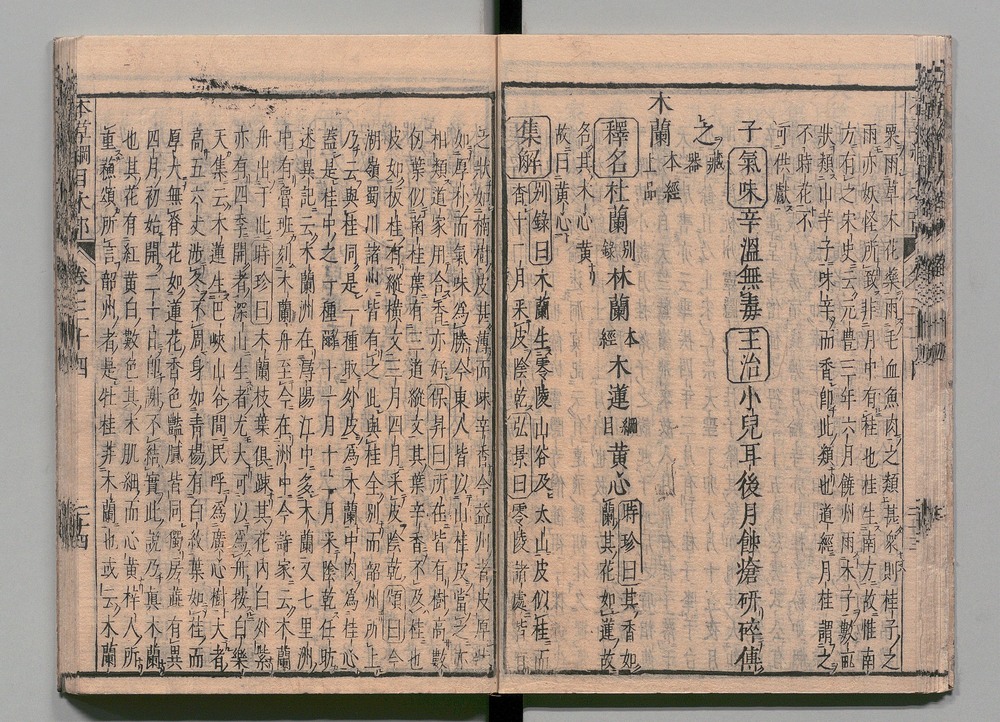 異雨草木花藥雨毛血魚肉之類甚衆則桂子之
雨亦妖怪所致非月中有桂也桂生南方故惟南
方有之宋史云元豐三年六月饒州雨木子數畝
狀類山芋子味辛而香即此類也道經月桂謂之
不時花不
可供獻
子氣味辛溫無毒主治小兒耳後月蝕瘡研碎傅
之藏器
木蘭本經上品
釋名杜蘭別錄林蘭本經木蓮綱目黃心時珍曰其香如
蘭其花如蓮故
名其木心黃
故曰黃心
集解別錄曰木蘭生零陵山谷及太山皮似桂而
香十二月采皮陰乾弘景曰零陵諸處皆
之狀如楠樹皮甚薄而味辛香今益州者皮厚
如厚朴而氣味爲勝今東人皆以山桂皮當之
相類道家用合香亦好保昇曰所在皆有樹高數
仞葉似菌桂葉有三道縱文其葉辛香不及桂
皮如板桂有縱橫文三月四月采皮陰乾頌曰今
湖嶺蜀川諸州皆有之此與桂全別而韶州所上
乃云與桂同是一種取外皮爲木蘭中肉爲桂心
蓋是桂中之一種爾十一月十二月采陰乾任昉
述異記云木蘭洲在潯陽江中多木蘭又七里洲
中有魯班刻木蘭舟至今在洲中今詩家云木蘭
舟出于此時珍曰木蘭枝葉俱疎其花內白外紫
亦有四季開者深山生者尤大可以爲舟按白樂
天集云木蓮生巴峽山谷間民呼爲黃心樹大者
高五六丈涉冬不凋身如青楊有白紋葉如桂而
厚大無脊花如蓮花香色豔膩皆同獨房蕊有異
四月初始開二十日即謝不結實此說乃眞木蘭
也其花有紅黃白數色其木肌細而心黃梓人所
重蘇頌所言韶州者是牡桂非木蘭也或云木蘭
本草綱目木部
卷三十四